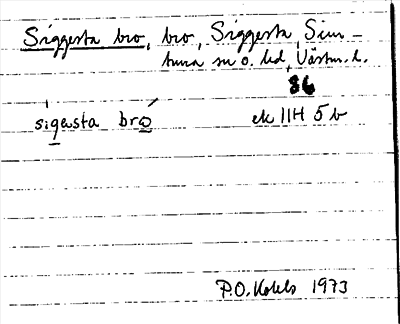 Siggesta bro, bro, Siggesta, Sim-
tuna sn o. hd, Västm. l.
86
sigasta bro ek 11H 5b
P.O. 1973